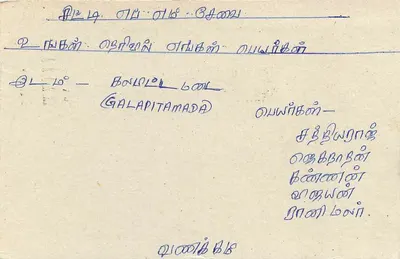 சிட்டி எப் எம் சேவை
உங்கள் தெரிவில் எங்கள் பெயர்கள்
இடம் - கலபிட்டமடை
(GALAPITAMADA)
பெயர்கள் -
சத்தியராஜ்
ஜெகநாதன்
கண்ணன்
விஜயன்
ராணி மலர்.
வணக்கம்